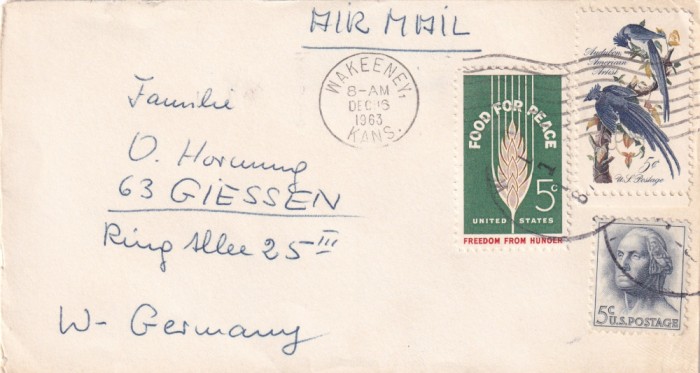 AIR MAIL
WAKEENEY,
8-AM
DEC 16
1963
KANS.
Familie
O. Hornung
63 GIESSEN
Ring Allee 25 III
W-Germany
FOOD FOR PEACE
5c
UNITED STATES
FREEDOM FROM HUNGER
Audubon
American
Artist
5c
U.S. Postage
5c
U.S. POSTAGE